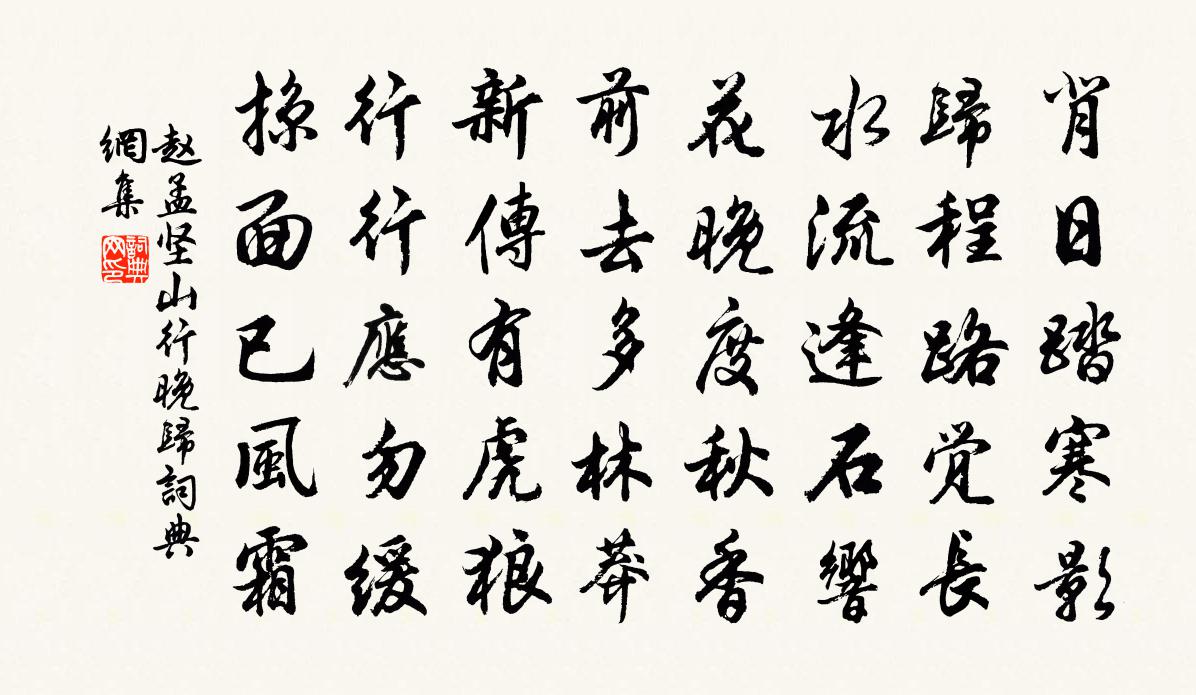 背日踏寒影
歸程路觉長
水流逢石響
花晚度秋香
前去多林莽
新傳有虎狼
行行應勿緩
掠面已風霜
赵孟坚山行晚歸詞典
網集
詞典
网印